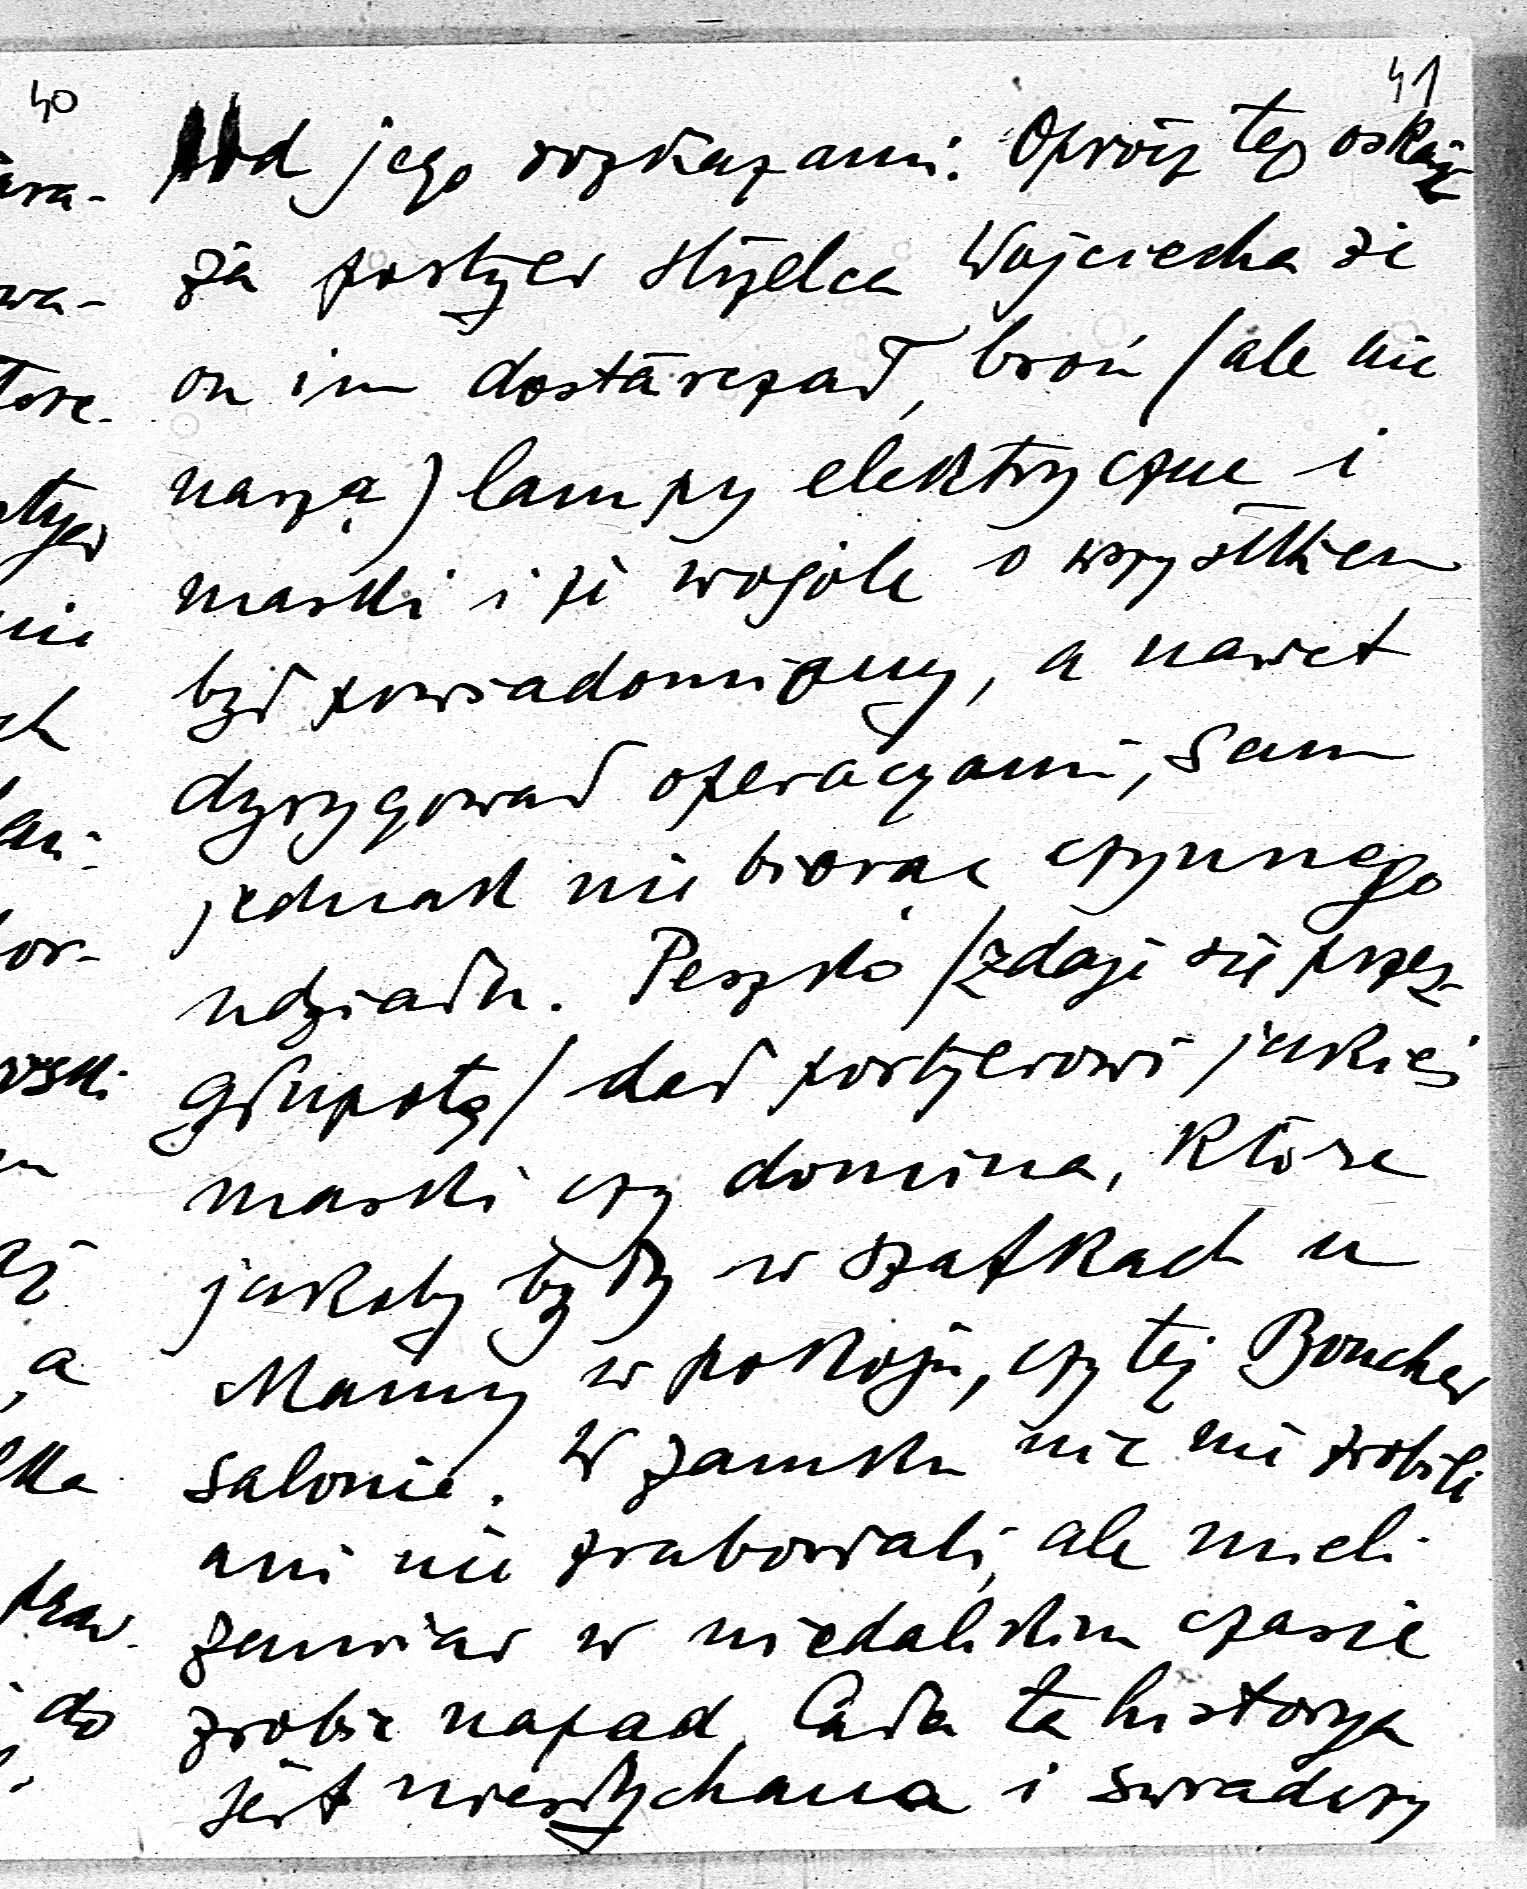 40
41
pod jego rozkazami. Oprócz tego oskar-
ża portyer strzelca Wojciecha że
on im dostarczał, broń (ale nie
naszą) lampy elektryczne i
maski i że wogóle o wszystkiem
był powiadomiony, a nawet
dyrygował operacyami, sam
jednak nie biorąc czynnego
udziału. Peszko (zdaje się przez
głupotę) dał portyerowi jakieś
maski czy domina, które
jakoby były w szafkach u
Mamy w pokoju, czy też Boucher
salonie. W zamku nic nie zrobili
ani nie zrabowali, ale mieli
zamiar w niedalekim czasie
zrobić napad. Cała ta historya
jest niesłychana i świadczy
ara-
wa-
tore-
styer
nie
ch
or-
a
do